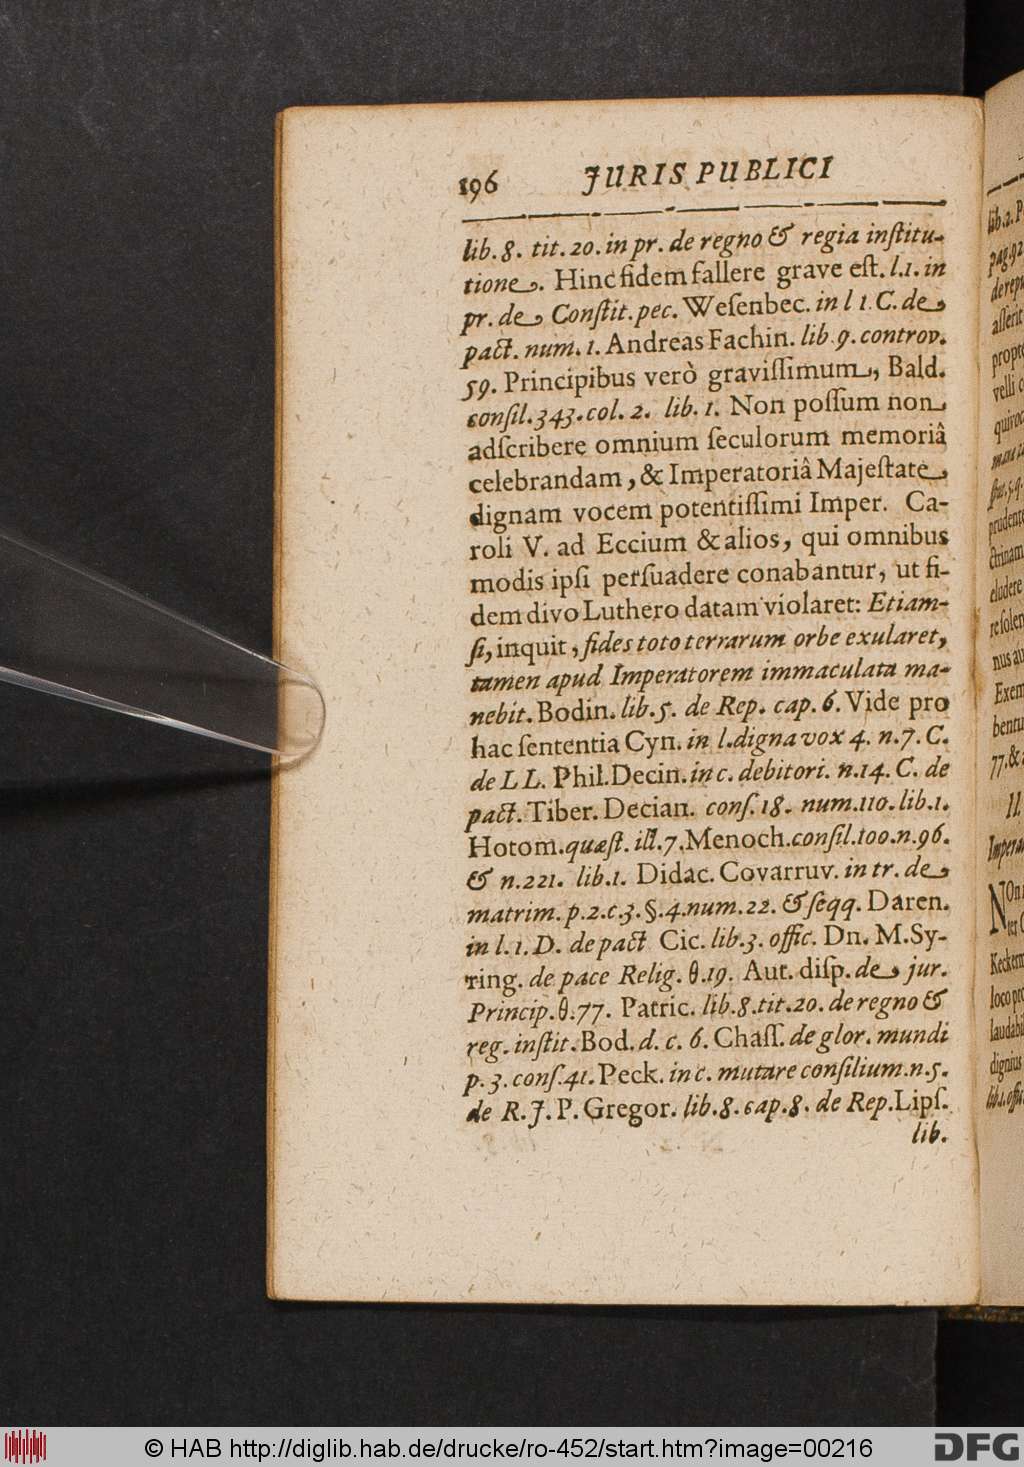 196 JURIS PUBLICI
lib. 8. tit. 20. in pr. de regno & regia institu-
tione. Hinc fidem fallere grave est. l. 1. in
pr. de Constit. pec. Wesenbec. in l 1. C. de
pact. num. 1. Andreas Fachin. lib. 9. controv.
59. Principibus verò gravissimum, Bald.
consil. 343. col. 2. lib. 1. Non possum non
adscribere omnium seculorum memoriâ
celebrandam, & Imperatoriâ Majestate
dignam vocem potentissimi Imper. Ca-
roli V. ad Eccium & alios, qui omnibus
modis ipsi persuadere conabantur, ut fi-
dem divo Luthero datam violaret: Etiam-
si, inquit, fides toto terrarum orbe exularet,
tamen apud Imperatorem immaculata ma-
nebit. Bodin. lib. 5. de Rep. cap. 6. Vide pro
hac sententia Cyn. in l. digna vox 4. n. 7. C.
de LL. Phil. Decin. in c. debitori. n. 14. C. de
pact. Tiber. Decian. cons. 18. num. 110. lib. 1.
Hotom. quæst. ill. 7. Menoch. consil. 100. n. 96.
& n. 221. lib. 1. Didac. Covarruv. in tr. de
matrim. p. 2. c. 3. §. 4. num. 22. & seqq. Daren.
in l. 1. D. de pact Cic. lib. 3. offic. Dn. M. Sy-
ring. de pace Relig. θ. 19. Aut. disp. de jur.
Princip. θ. 77. Patric. lib. 8. tit. 20. de regno &
reg. instit. Bod. d. c. 6. Chass. de glor. mundi
p. 3. cons. 41. Peck. in c. mutare consilium. n. 5.
de R. J. P. Gregor. lib. 8. cap. 8. de Rep. Lips.
lib.
lib. 2. P
pag. 92
de repu
asserit
propte
velli c
quivoc
prudente
ctrinam
eludere
re solen
nus au
Exem
bentu
77. &
II.
Impera
NOn
ter C
Keckerm
loco pro
laudabi
dignius
lib. 1. offi
© HAB http://diglib.hab.de/drucke/ro-452/start.htm?image=00216
DFG